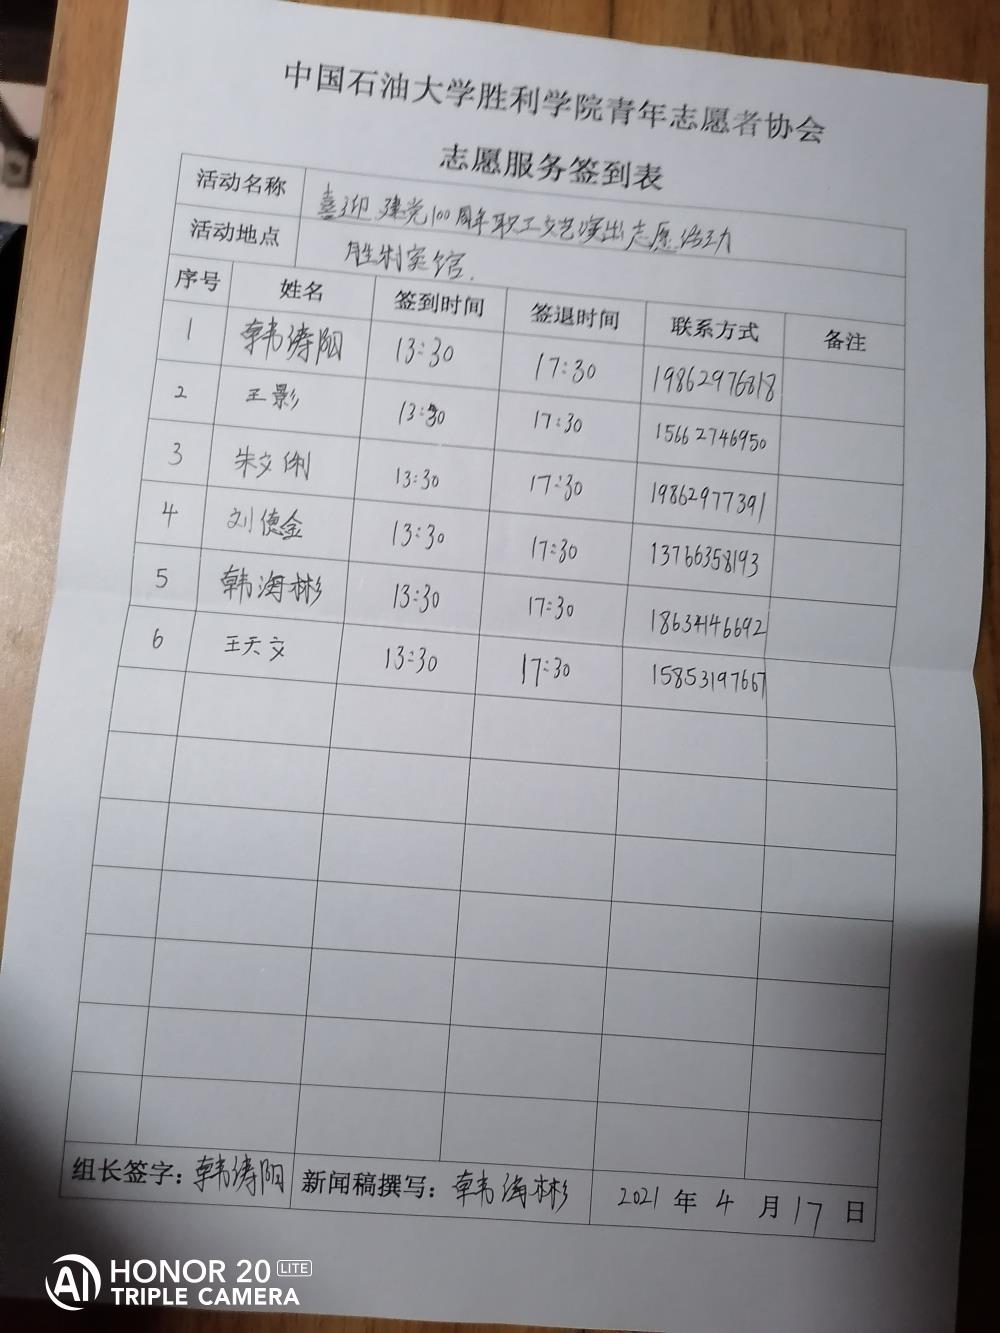 中国石油大学胜利学院青年志愿者协会
志愿服务签到表
活动名称 喜迎建党100周年职工文艺演出志愿活动
活动地点 胜利宾馆.
序号 姓名 签到时间 签退时间 联系方式 备注
1 韩涛阳 13:30 17:30 19862976818
2 王影 13:30 17:30 15662746950
3 朱文俐 13:30 17:30 19862977391
4 刘德金 13:30 17:30 13766358193
5 韩海彬 13:30 17:30 18634146692
6 王天文 13:30 17:30 15853197667
组长签字：韩涛阳 新闻稿撰写：韩海彬 2021 年 4 月 17 日
AI HONOR 20 LITE
TRIPLE CAMERA